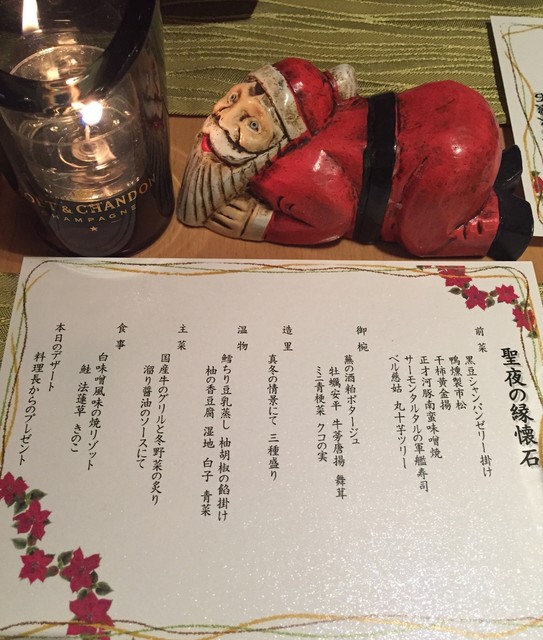 MOËT & CHANDON
CHAMPAGNE
聖夜の縁懐石
前菜
黒豆シャンパンゼリー掛け
鴨燻製市松
干柿黄金揚
正才河豚南蛮味噌焼
サーモンタルタルの軍艦寿司
ベル慈姑 丸十芋ツリー
御椀
蕪の酒粕ポタージュ
牡蠣安平 牛蒡唐揚 舞茸
ミニ青梗菜 クコの実
造里
真冬の情景にて 三種盛り
温物
鱈ちり豆乳蒸し 柚胡椒の餡掛け
柚の香豆腐 湿地 白子 青菜
主菜
国産牛のグリルと冬野菜の炙り
溜り醤油のソースにて
食事
白味噌風味の焼リゾット
鮭 法蓮草 きのこ
本日のデザート
料理長からのプレゼント